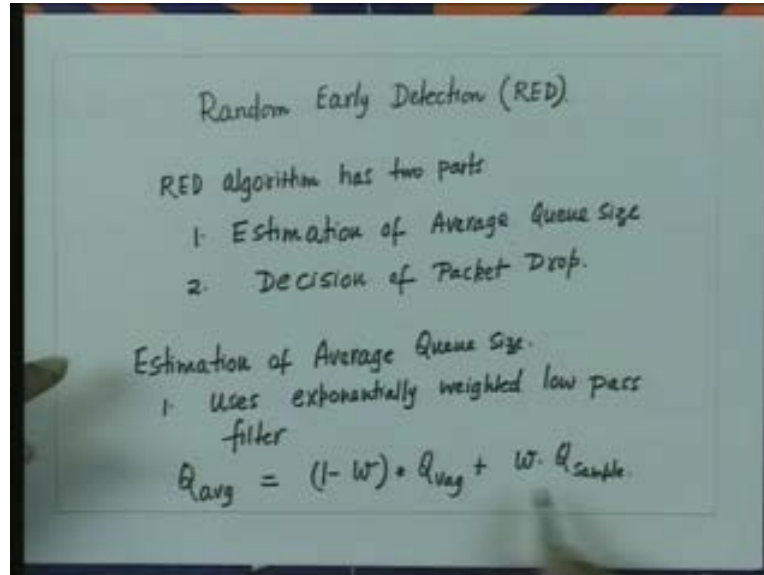 Random Early Detection (RED).
RED algorithm has two parts
1. Estimation of Average Queue Size
2. Decision of Packet Drop.
Estimation of Average Queue Size.
1. Uses exponentially weighted low pass
filter
Qavg = (1-W) * Qvag + W. Qsample.